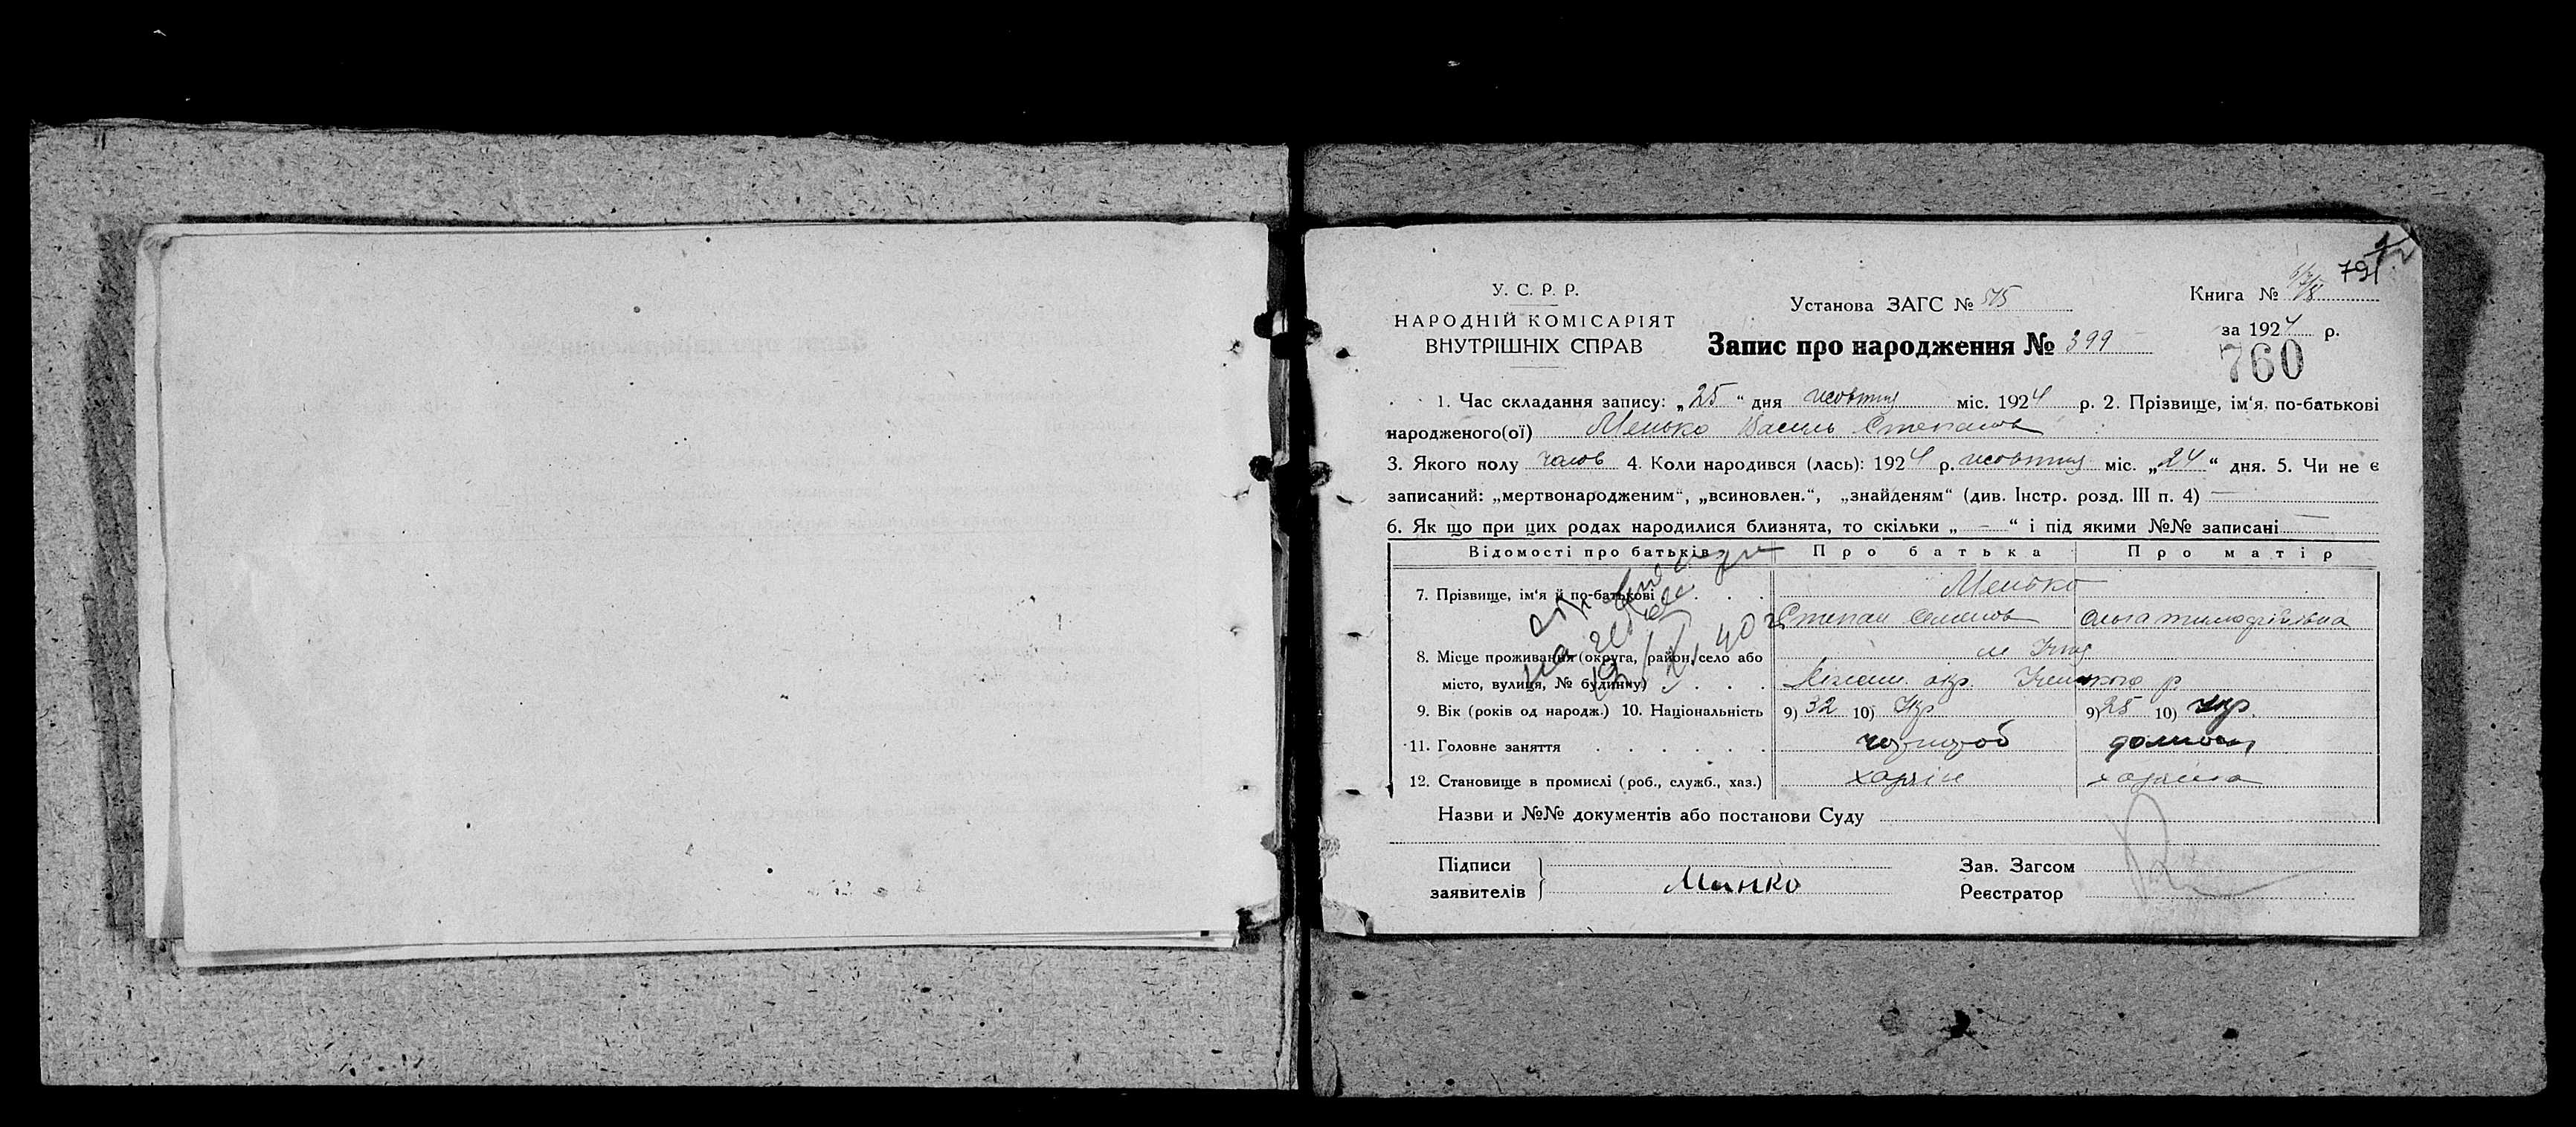 791
У. С. Р. Р.
НАРОДНІЙ КОМІСАРІЯТ
ВНУТРІШНІХ СПРАВ
Установа ЗАГС № 515
Книга №
за 1924 р.
Запис про народження № 399
760
1. Час складання запису: „25“ дня жовтня міс. 1924 р. 2. Прізвище, ім‘я, по-батькові
народженого(ої) Менько Василь Степанов
3. Якого полу чолов 4. Коли народився (лась): 1924 р. жовтня міс. „24“ дня. 5. Чи не є
записаний: „мертвонародженим“, „всиновлен.“, „знайденям“ (див. Інстр. розд. III п. 4) —
6. Як що при цих родах народилися близнята, то скільки „ — “ і під якими №№ записані —
Відомості про батьків Про батька Про матір
7. Прізвище, ім‘я й по-батькові . . . . Менько
Степан Семенов Ольга Тимофіївна
8. Місце проживання (округа, район, село або м Ічня
місто, вулиця, № будинку) . . . . Ніжин. окр. Ічнянського р
9. Вік (років од народж.) 10. Національність 9) 32 10) Укр 9) 25 10) Укр.
11. Головне заняття . . . . . . хлібороб домгосп
12. Становище в промислі (роб., служб., хаз.) хазяїн хазяїна
Назви и №№ документів або постанови Суду
Підписи
заявителів
Минко
Зав. Загсом
Реєстратор